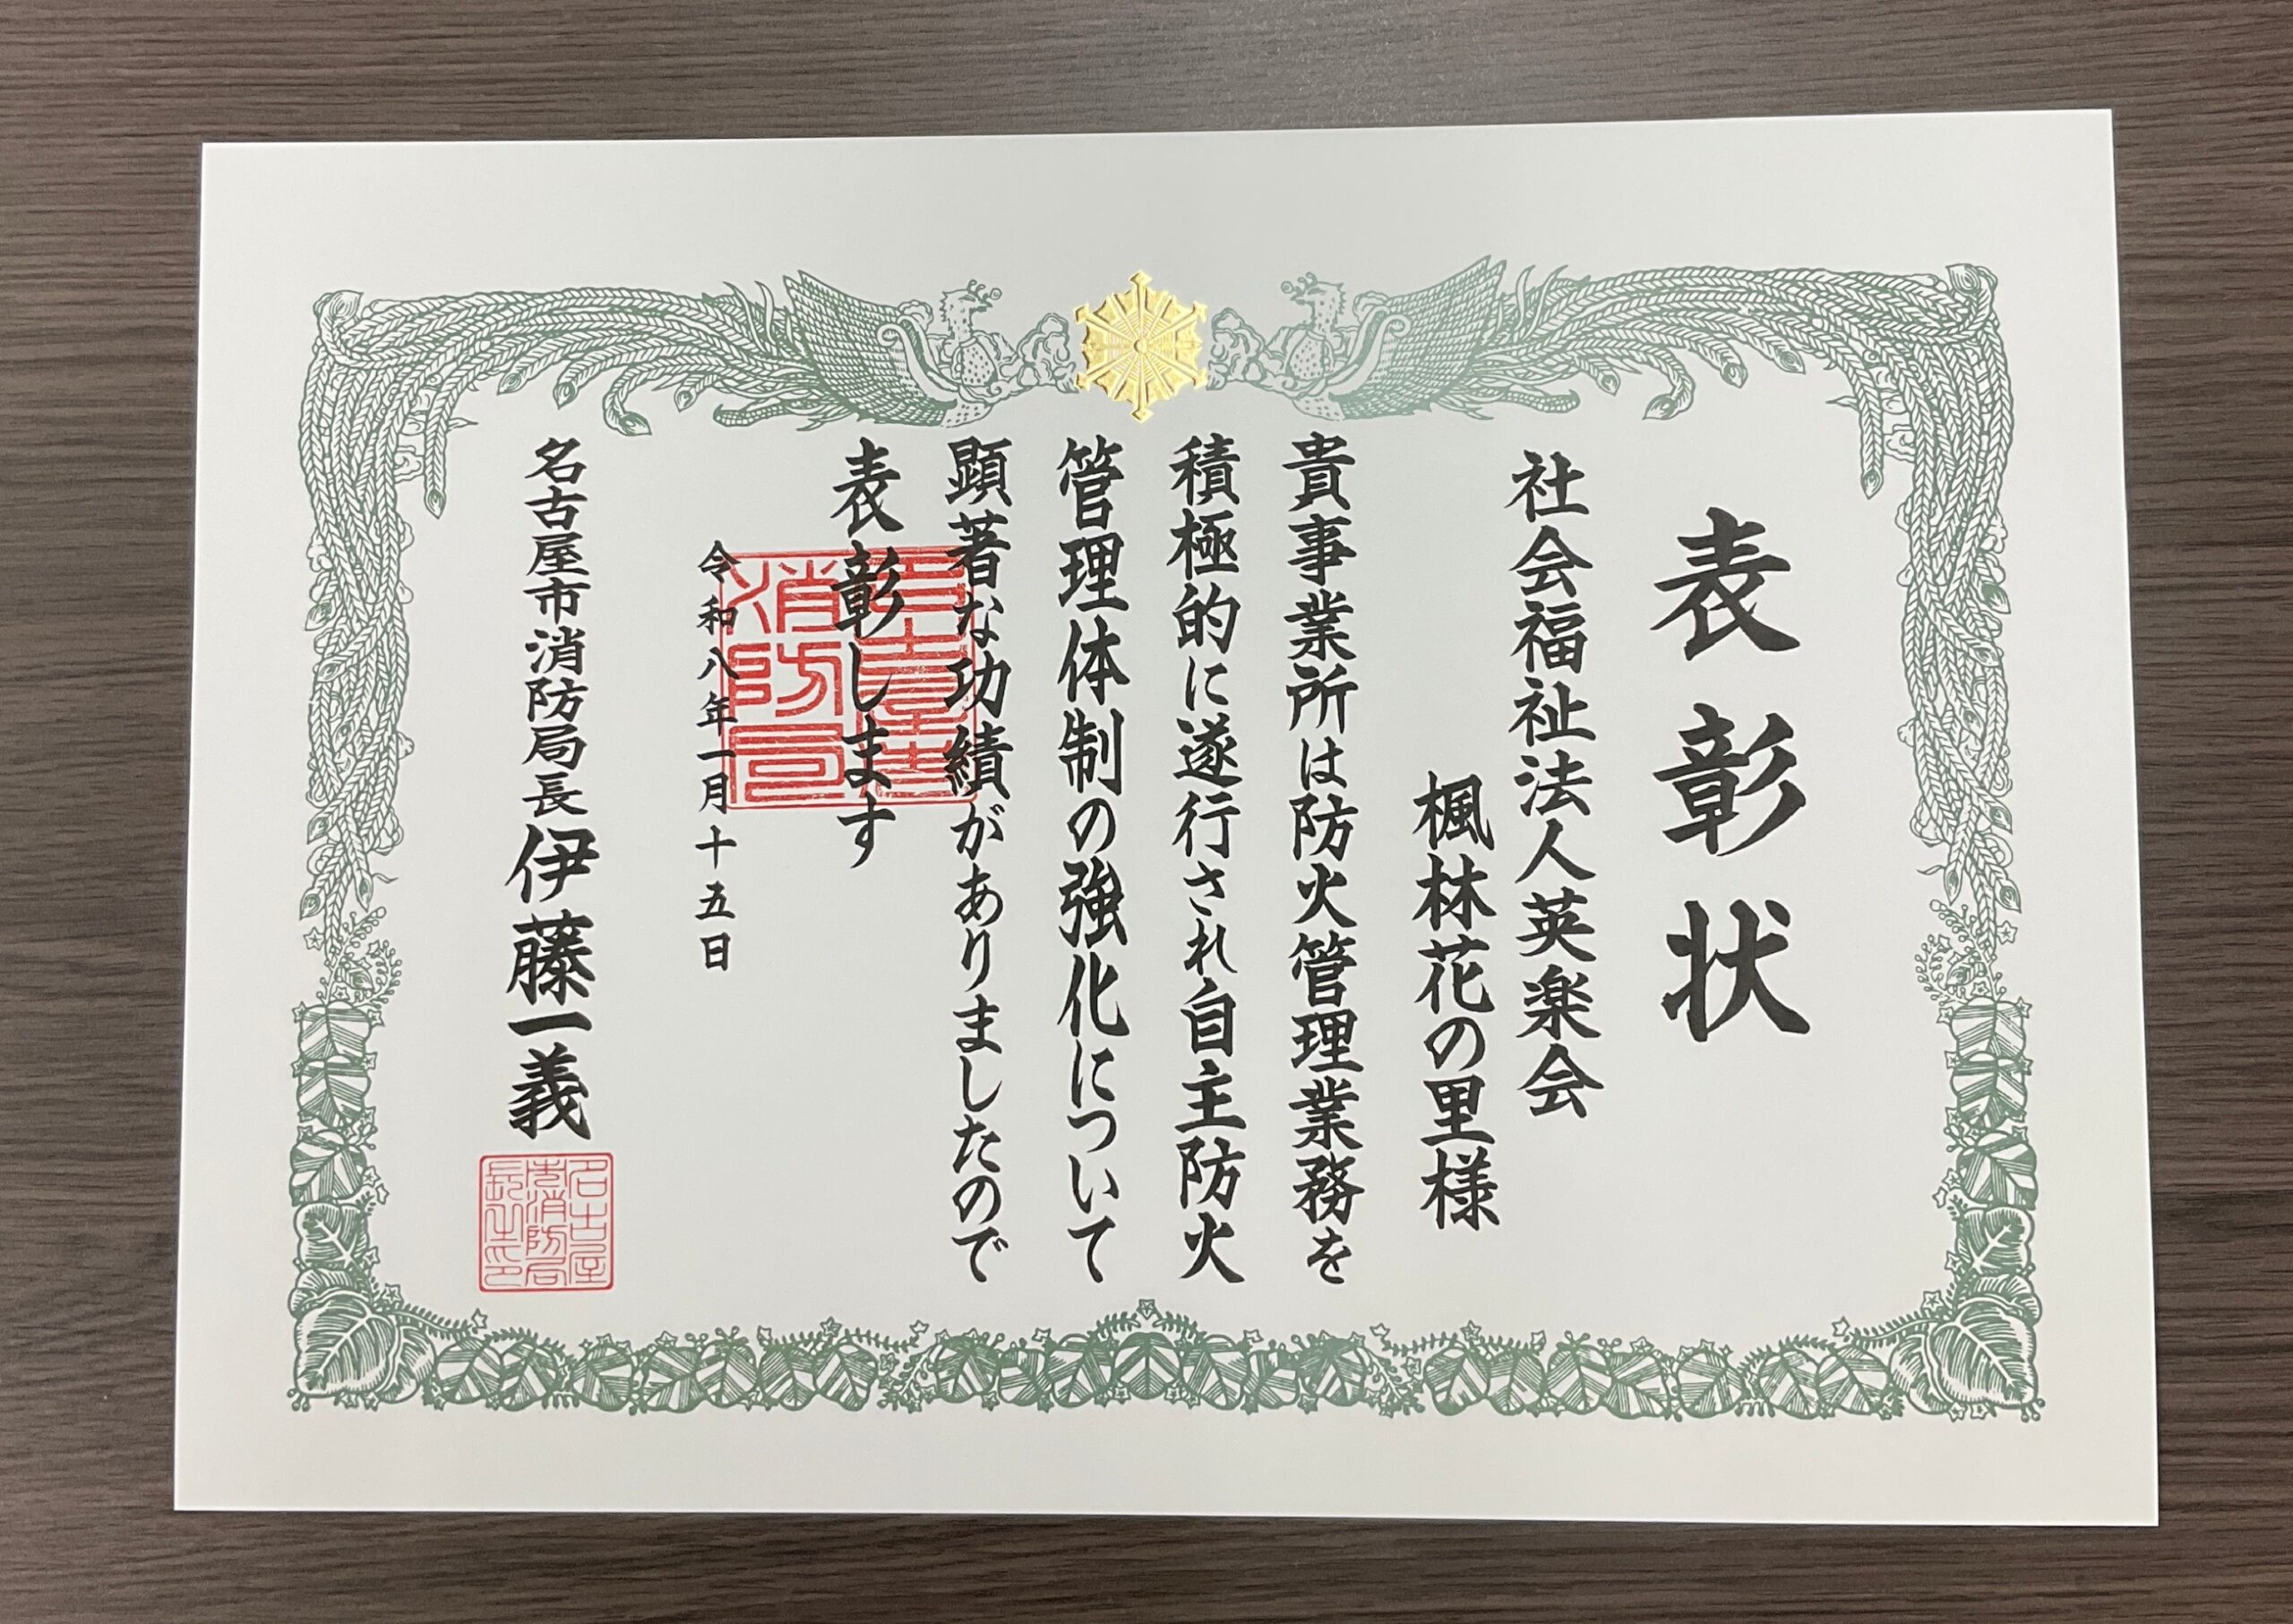 表彰状
社会福祉法人英楽会
楓林花の里様
貴事業所は防火管理業務を
積極的に遂行され自主防火
管理体制の強化について
顕著な功績がありましたので
表彰します
令和八年一月十五日
名古屋市消防局長伊藤一義
名古屋市消防局
名古屋市消防局長之印